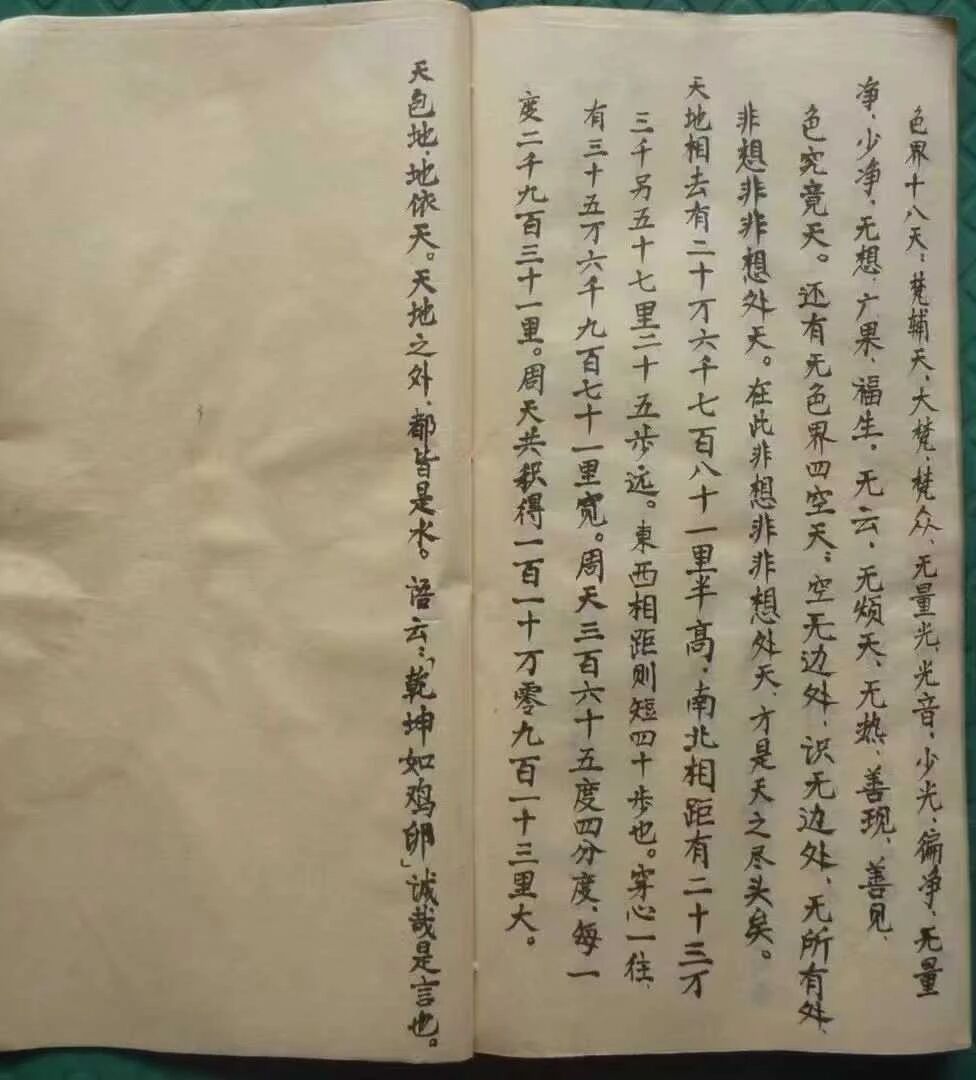 色界十八天：梵辅天、大梵、梵众、无量光、光音、少光、徧净、无量
净、少净、无想、广果、福生、无云、无烦天、无热、善现、善见、
色究竟天。还有无色界四空天：空无边处、识无边处、无所有处、
非想非非想处天。在此非想非非想处天，方是天之尽头矣。
天地相去有二十万六千七百八十一里半高，南北相距有二十三万
三千另五十七里二十五步远。東西相距则短四十步也。穿心一往，
有三十五万六千九百七十一里宽。周天三百六十五度四分度，每一
度二千九百三十一里。周天共积得一百一十万零九百一十三里大。
天包地，地依天。天地之外，都皆是水。语云：「乾坤如鸡卵」诚哉是言也。